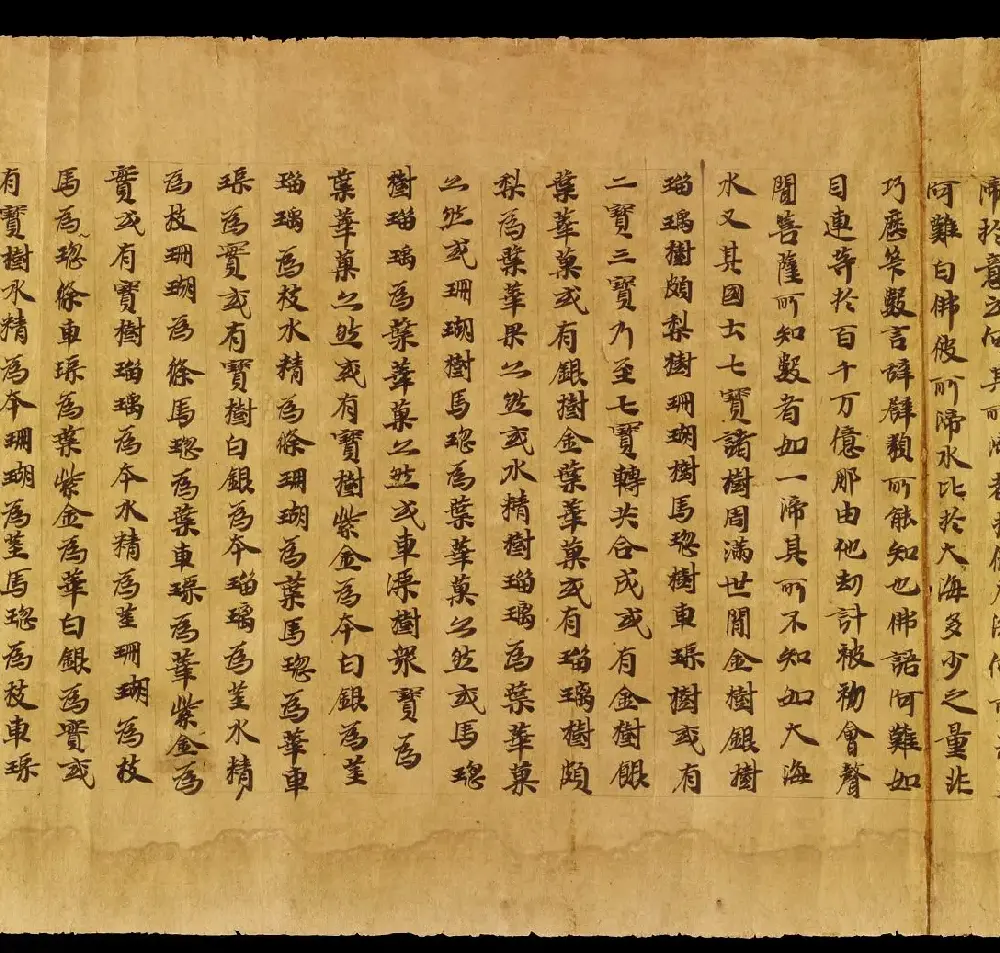 渧於意云何其所
阿難白佛彼所渧水比於大海多少之量非
巧歷筭數言辞譬類所能知也佛語阿難如
目連等於百千万億那由他劫計彼初會聲
聞菩薩所知數者如一渧其所不知如大海
水又其國土七寶諸樹周滿世間金樹銀樹
瑠璃樹頗梨樹珊瑚樹馬瑙樹車璖樹或有
二寶三寶乃至七寶轉共合成或有金樹銀
葉華菓或有銀樹金葉華菓或有瑠璃樹頗
梨為葉華果亦然或水精樹瑠璃為葉華菓
亦然或珊瑚樹馬瑙為葉華菓亦然或馬瑙
樹瑠璃為葉華菓亦然或車渠樹衆寶為
葉華菓亦然或有寶樹紫金為本白銀為莖
瑠璃為枝水精為條珊瑚為葉馬瑙為華車
璖為實或有寶樹白銀為本瑠璃為莖水精
為枝珊瑚為條馬瑙為葉車璖為華紫金為
實或有寶樹瑠璃為本水精為莖珊瑚為枝
馬為瑙條車璖為葉紫金為華白銀為實或
有寶樹水精為本珊瑚為莖馬瑙為枝車璖